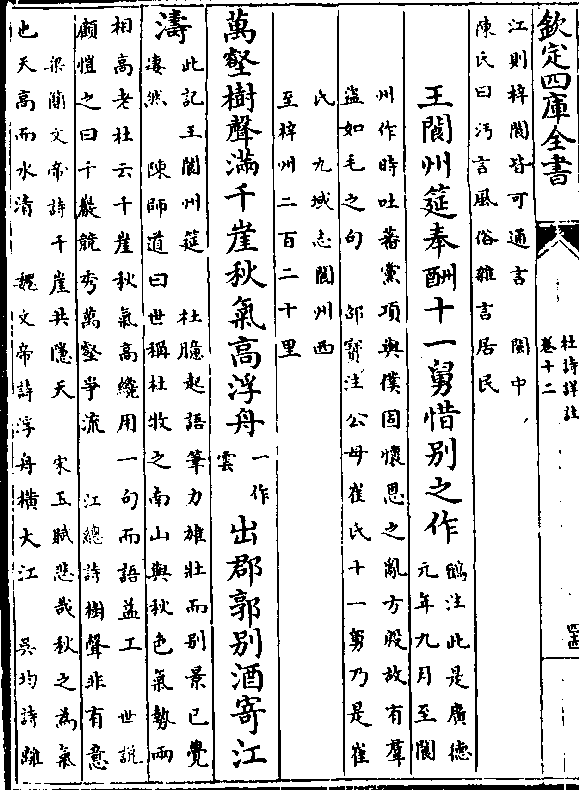 欽定四庫全書
杜詩詳註
卷十二
江則梓閬皆可通言　閬中
陳氏曰污言風俗雜言居民
王閬州筵奉酬十一舅惜别之作 鶴注此是廣德
元年九月至閬
州作時吐蕃黨項與僕固懷恩之亂方殷故有羣
盜如毛之句　邵寶注公母崔氏十一舅乃是崔
氏　九域志閬州西
至梓州二百二十里
萬壑樹聲滿千崖秋氣高浮舟 一作
雲 出郡郭别酒寄江
濤 此記王閬州筵　杜臆起語筆力雄壯而别景已覺
凄然　陳師道曰世稱杜牧之南山與秋色氣勢兩
相高老杜云千崖秋氣高纔用一句而語益工　世說
顧愷之曰千巖競秀萬壑爭流　江總詩樹聲非有意
梁簡文帝詩千崖共隱天　宋玉賦悲哉秋之為氣
也天高而水清　魏文帝詩浮舟橫大江　吳均詩離